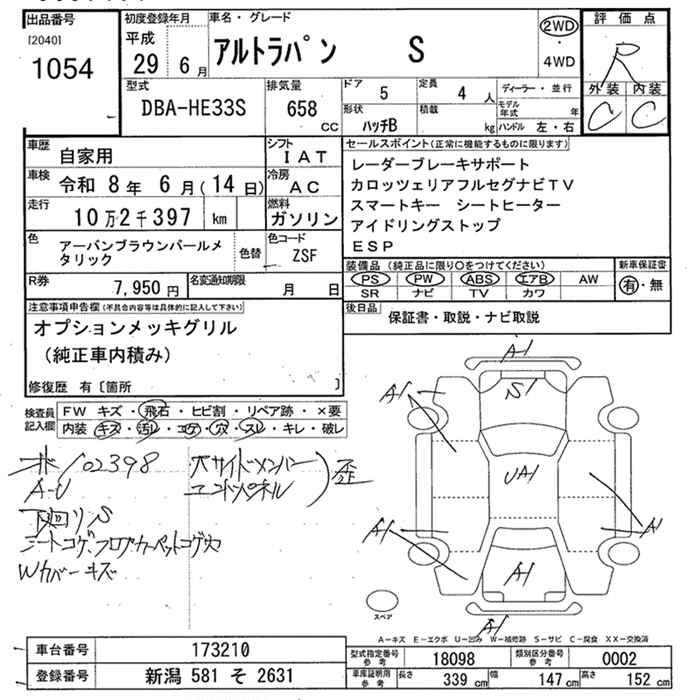 出品番号 初度登録年月 車名・グレード 2WD 評価点
[2040] 平成 ・ R
1054 29 6月 アルトラパン S 4WD 外装 内装
C C
型式 排気量 ドア 5 定員 4人 ディーラー・並行
DBA-HE33S 658 cc 形状 ハッチB 積載 kg モデル年式 年
ハンドル 左・右
車歴 自家用 シフト IAT セールスポイント(正常に機能するものに限ります)
車検 令和 8年 6月(14日) 冷房 AC レーダーブレーキサポート
走行 10万2千397 km 燃料 ガソリン カロッツェリアフルセグナビTV
スマートキー シートヒーター
色 アーバンブラウンパールメタリック 色替 色コード ZSF アイドリングストップ
ESP
R券 7,950円 名変通知期限 月 日 装備品(純正品に限り○をつけてください) 新車保証書
PS PW ABS エアB AW 有・無
SR ナビ TV カワ
注意事項申告欄(不具合内容等は具体的に記入して下さい) 後日品 保証書・取説・ナビ取説
オプションメッキグリル
(純正車内積み)
修復歴 有〔箇所 〕
検査員記入欄 FW キズ・飛石・ヒビ割・リペア跡・×要
内装 キズ・汚レ・コゲ・穴・スレ・キレ・破レ
102398 サイドメンバー
A-U エンドパネル 歪
下廻りS
シートコゲ、フロアカーペットコゲ穴
Wカバーキズ
A-1
A1 S1
UA1
A1 A1
A1
A1
スペア
A-キズ E-エクボ U-凹み W-補修跡 S-サビ C-腐食 XX-交換済
車台番号 173210 型式指定番号 参考 18098 類別区分番号 参考 0002
登録番号 新潟 581 そ 2631 車庫証明用 参考 長さ 339 cm 幅 147 cm 高さ 152 cm